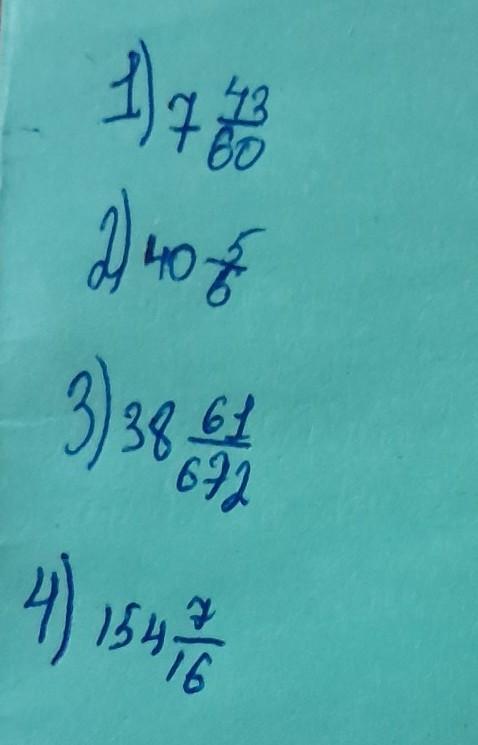 1) 7 43/60
2) 40 5/6
3) 38 61/672
4) 154 7/16